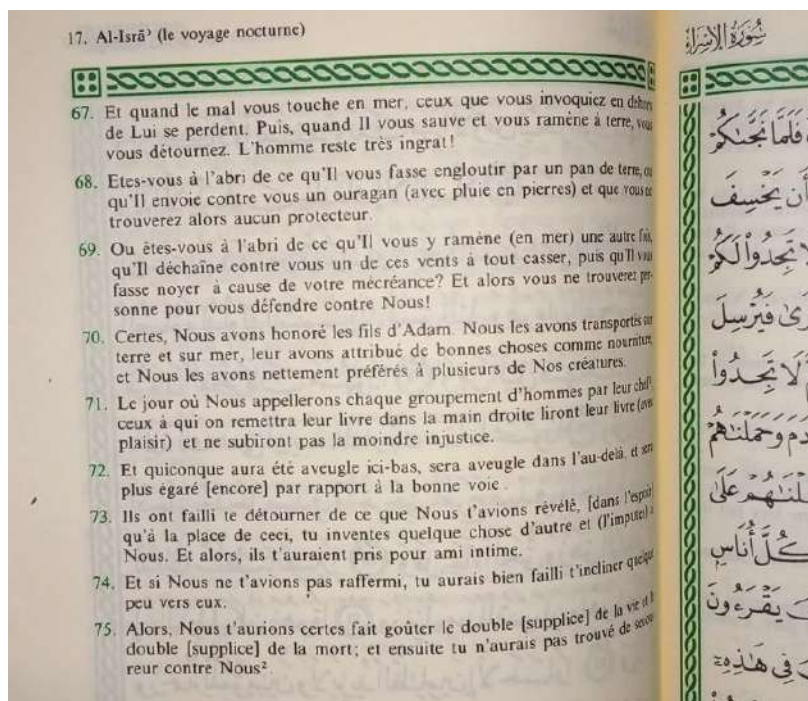 17. Al-Isrāʾ (le voyage nocturne)
67. Et quand le mal vous touche en mer, ceux que vous invoquiez en dehors
de Lui se perdent. Puis, quand Il vous sauve et vous ramène à terre, vous
vous détournez. L'homme reste très ingrat!
68. Etes-vous à l'abri de ce qu'Il vous fasse engloutir par un pan de terre, ou
qu'Il envoie contre vous un ouragan (avec pluie en pierres) et que vous ne
trouverez alors aucun protecteur.
69. Ou êtes-vous à l'abri de ce qu'Il vous y ramène (en mer) une autre fois,
qu'Il déchaîne contre vous un de ces vents à tout casser, puis qu'Il vous
fasse noyer à cause de votre mécréance? Et alors vous ne trouverez per-
sonne pour vous défendre contre Nous!
70. Certes, Nous avons honoré les fils d'Adam. Nous les avons transportés sur
terre et sur mer, leur avons attribué de bonnes choses comme nourriture,
et Nous les avons nettement préférés à plusieurs de Nos créatures.
71. Le jour où Nous appellerons chaque groupement d'hommes par leur chef¹,
ceux à qui on remettra leur livre dans la main droite liront leur livre (avec
plaisir) et ne subiront pas la moindre injustice.
72. Et quiconque aura été aveugle ici-bas, sera aveugle dans l'au-delà, et sera
plus égaré [encore] par rapport à la bonne voie.
73. Ils ont failli te détourner de ce que Nous t'avions révélé, [dans l'espoir]
qu'à la place de ceci, tu inventes quelque chose d'autre et (l'imputes) à
Nous. Et alors, ils t'auraient pris pour ami intime.
74. Et si Nous ne t'avions pas raffermi, tu aurais bien failli t'incliner quelque
peu vers eux.
75. Alors, Nous t'aurions certes fait goûter le double [supplice] de la vie et le
double [supplice] de la mort; et ensuite tu n'aurais pas trouvé de secou-
reur contre Nous²
سُورَةُ الإِسْرَاءِ
فَلَمَّا نَجَّىٰكُمْ
أَن يَخْسِفَ
لَا تَجِدُوا۟ لَكُمْ
فَيُرْسِلَ
لَا تَجِدُوا۟
وَحَمَلْنَٰهُمْ
عَلَىٰ
كُلَّ أُنَاسٍ
يَقْرَءُونَ
فِى هَٰذِهِۦٓ